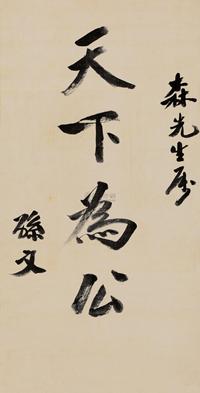 森先生属
天下為公
孫文